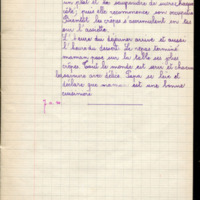 un plat et les saupoudre de sucre chaque
côté, puis elle recommence son occupation
Bientôt les crêpes s'accumulent en tas
sur l'assiette.
L'heure du déjeuner arrive et aussi
l'heure du dessert. Le repas terminé
maman pose sur la table ses plus
crêpes. Tout le monde est servi et chacun
les savoure avec délice. Papa se lève et
déclare que maman est une bonne
cuisinière